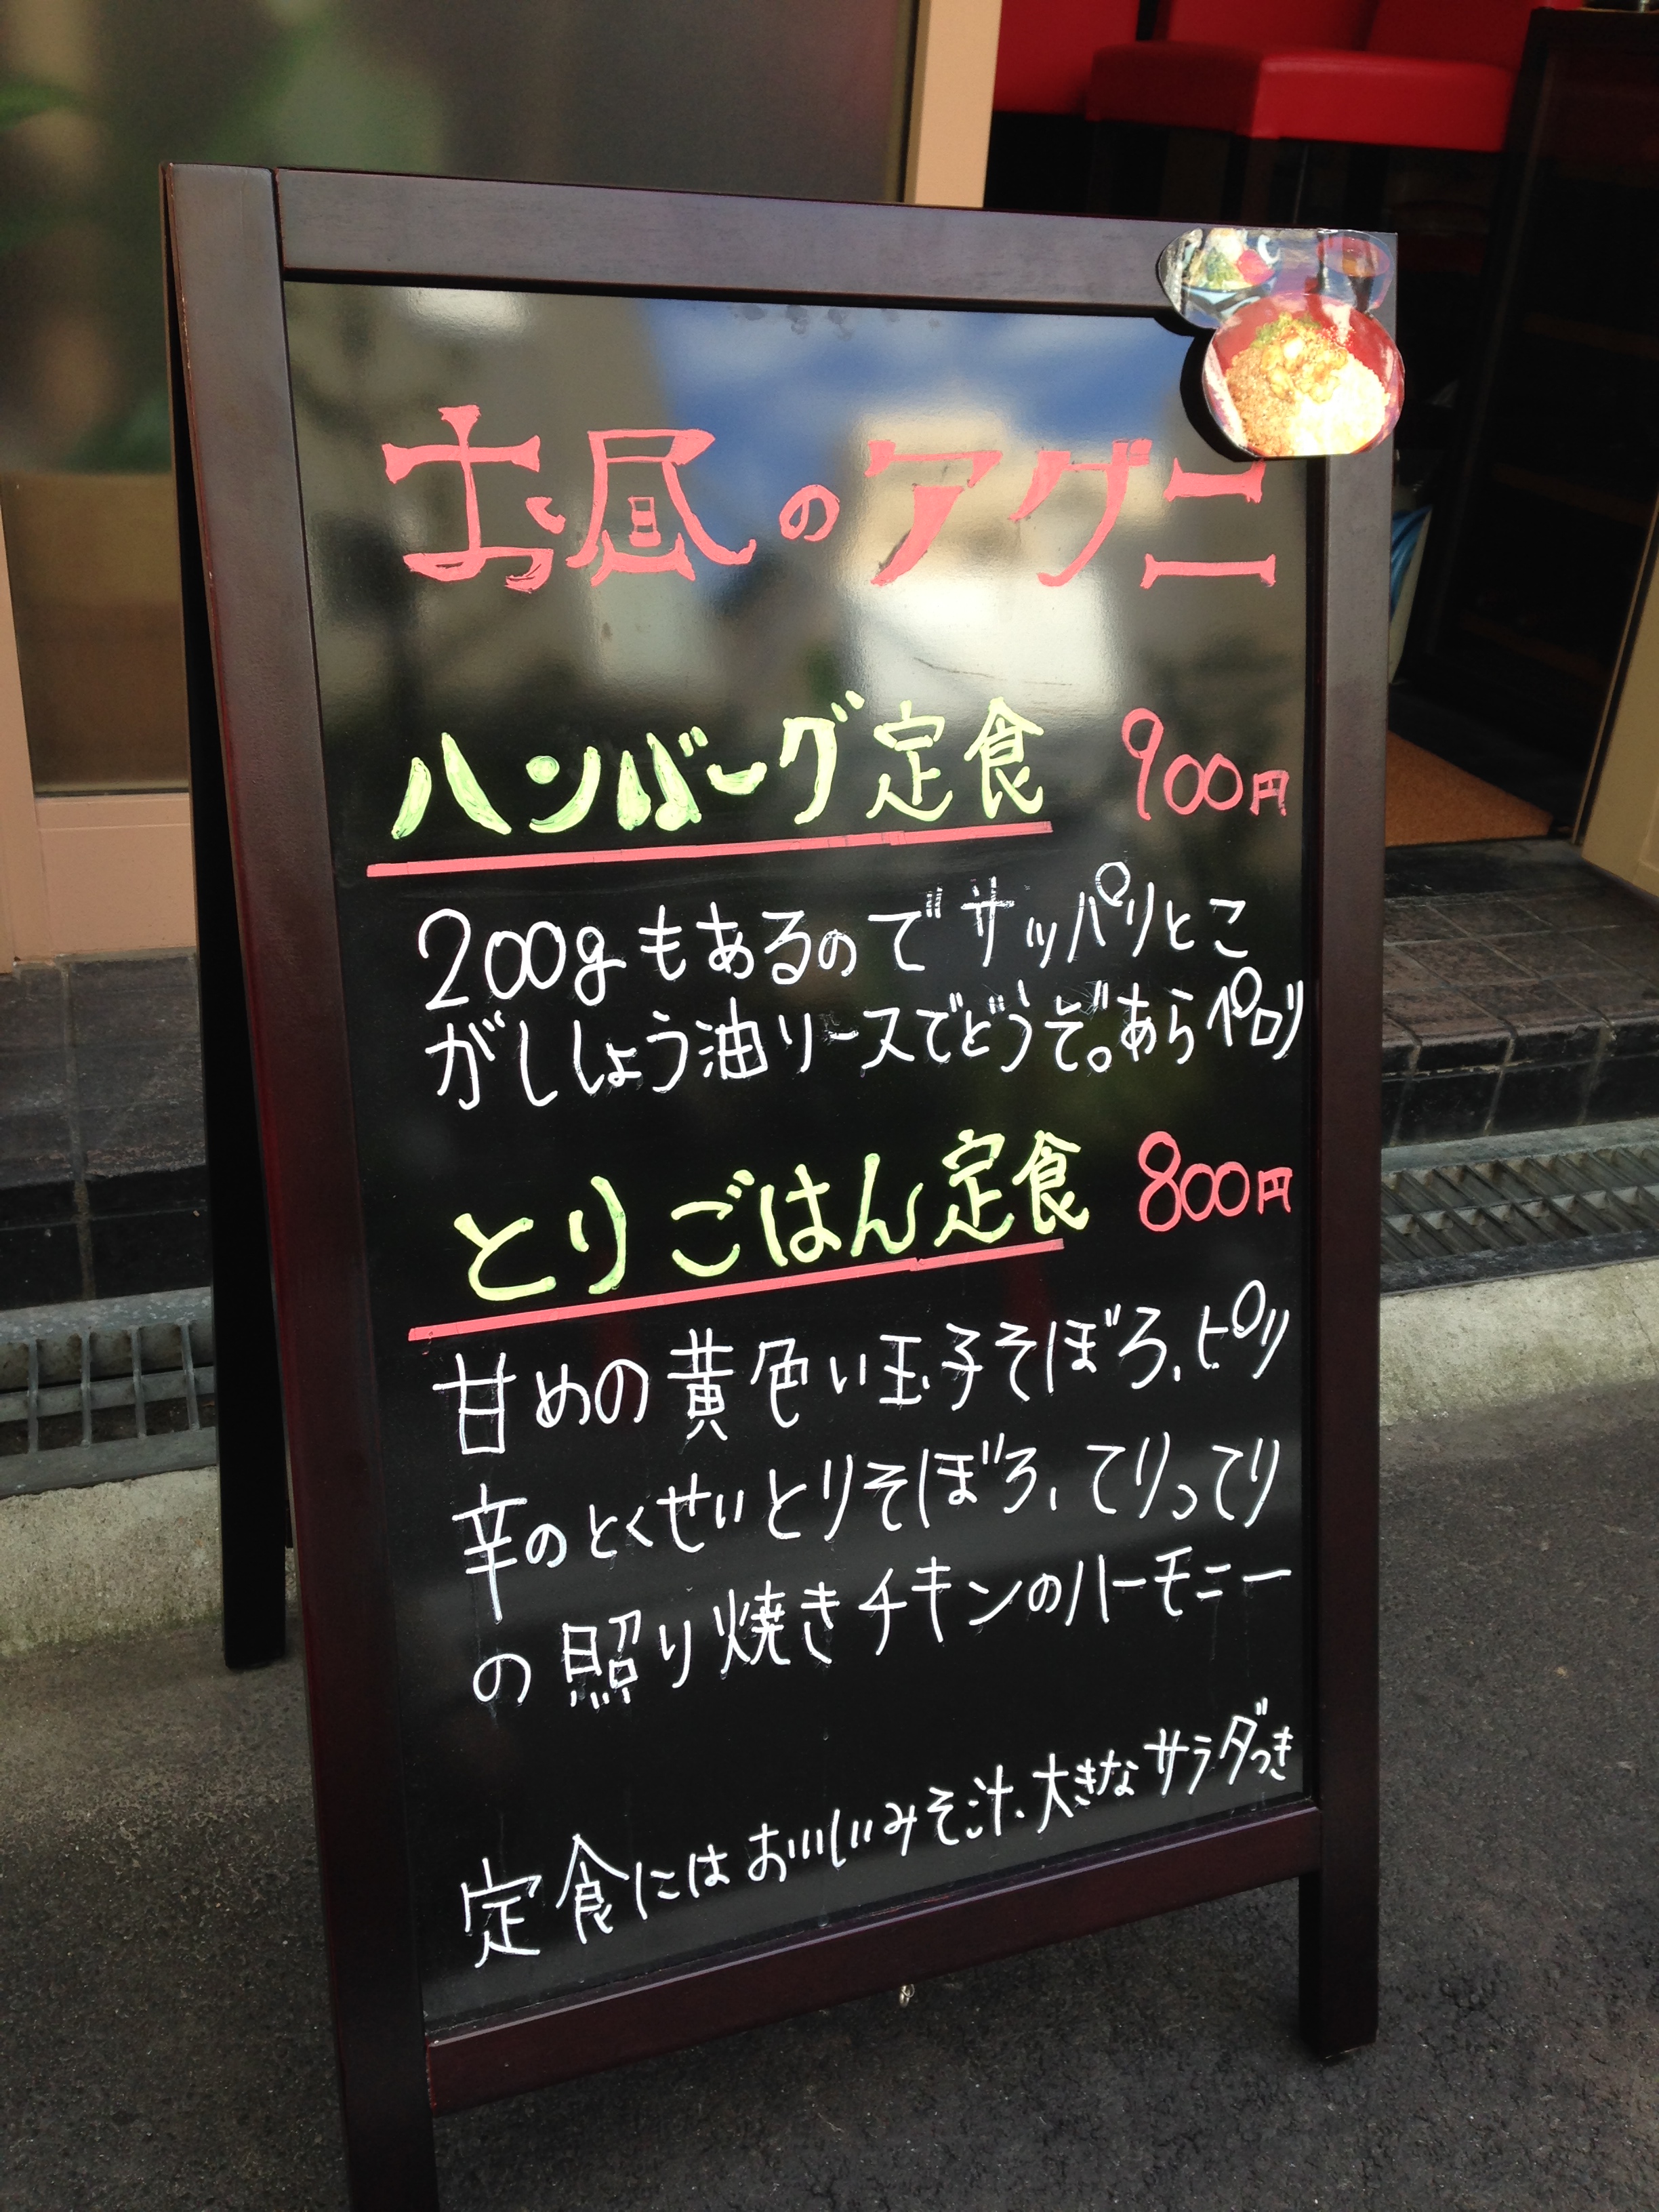 お昼のアグニ
ハンバーグ定食 900円
200gもあるのでサッパリとこ
がししょう油ソースでどうぞ。あらペロリ
とりごはん定食 800円
甘めの黄色い玉子そぼろ、ピリ
辛のとくせいとりそぼろ、てりってり
の照り焼きチキンのハーモニー
定食にはおいしいみそ汁、大きなサラダつき